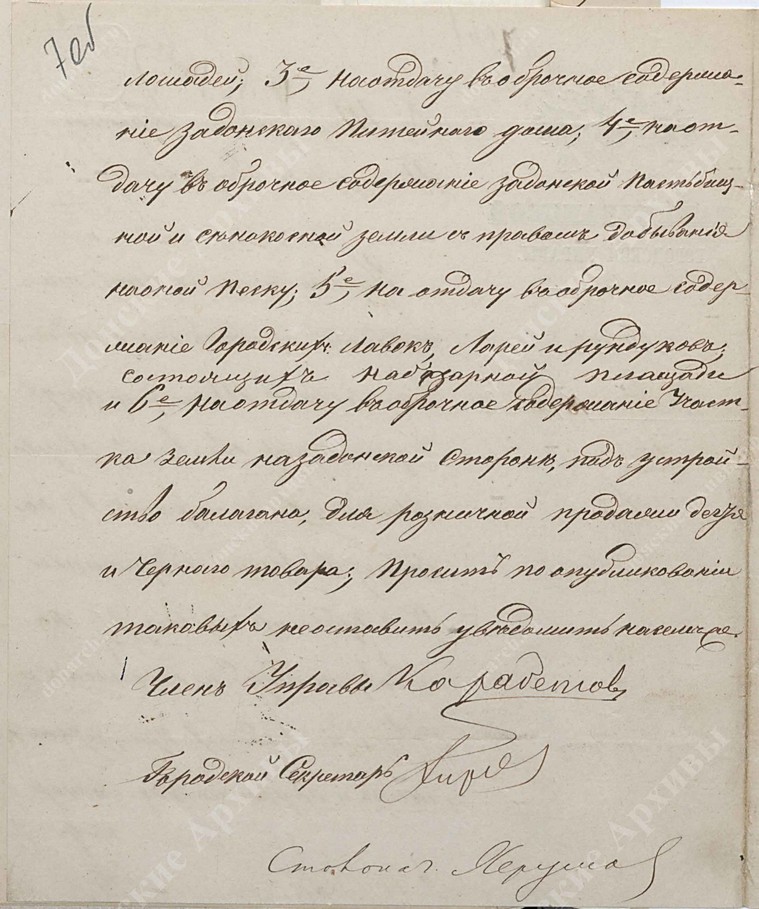 7об
лошадей; 3е, на отдачу въ оброчное содержа-
ніе Задонскаго Питейнаго дома; 4е, на от-
дачу въ оброчное содержаніе задонской пастьбищ-
ной и сѣнокосной земли съ правомъ добыванія
на оной песку; 5е, на отдачу въ оброчное содер-
жаніе Городскихъ лавокъ, ларей и рундуковъ,
состоящихъ на базарной площади
и 6е, на отдачу въ оброчное содержаніе Участ-
ка земли на задонской сторонѣ, подъ устрой-
ство балагана, для розничной продажи дегтя
и Чернаго товара; Проситъ по опубликованіи
таковыхъ неоставить увѣдомить
Членъ Управы Карабетовъ
Городской Секретарь
Столонач.